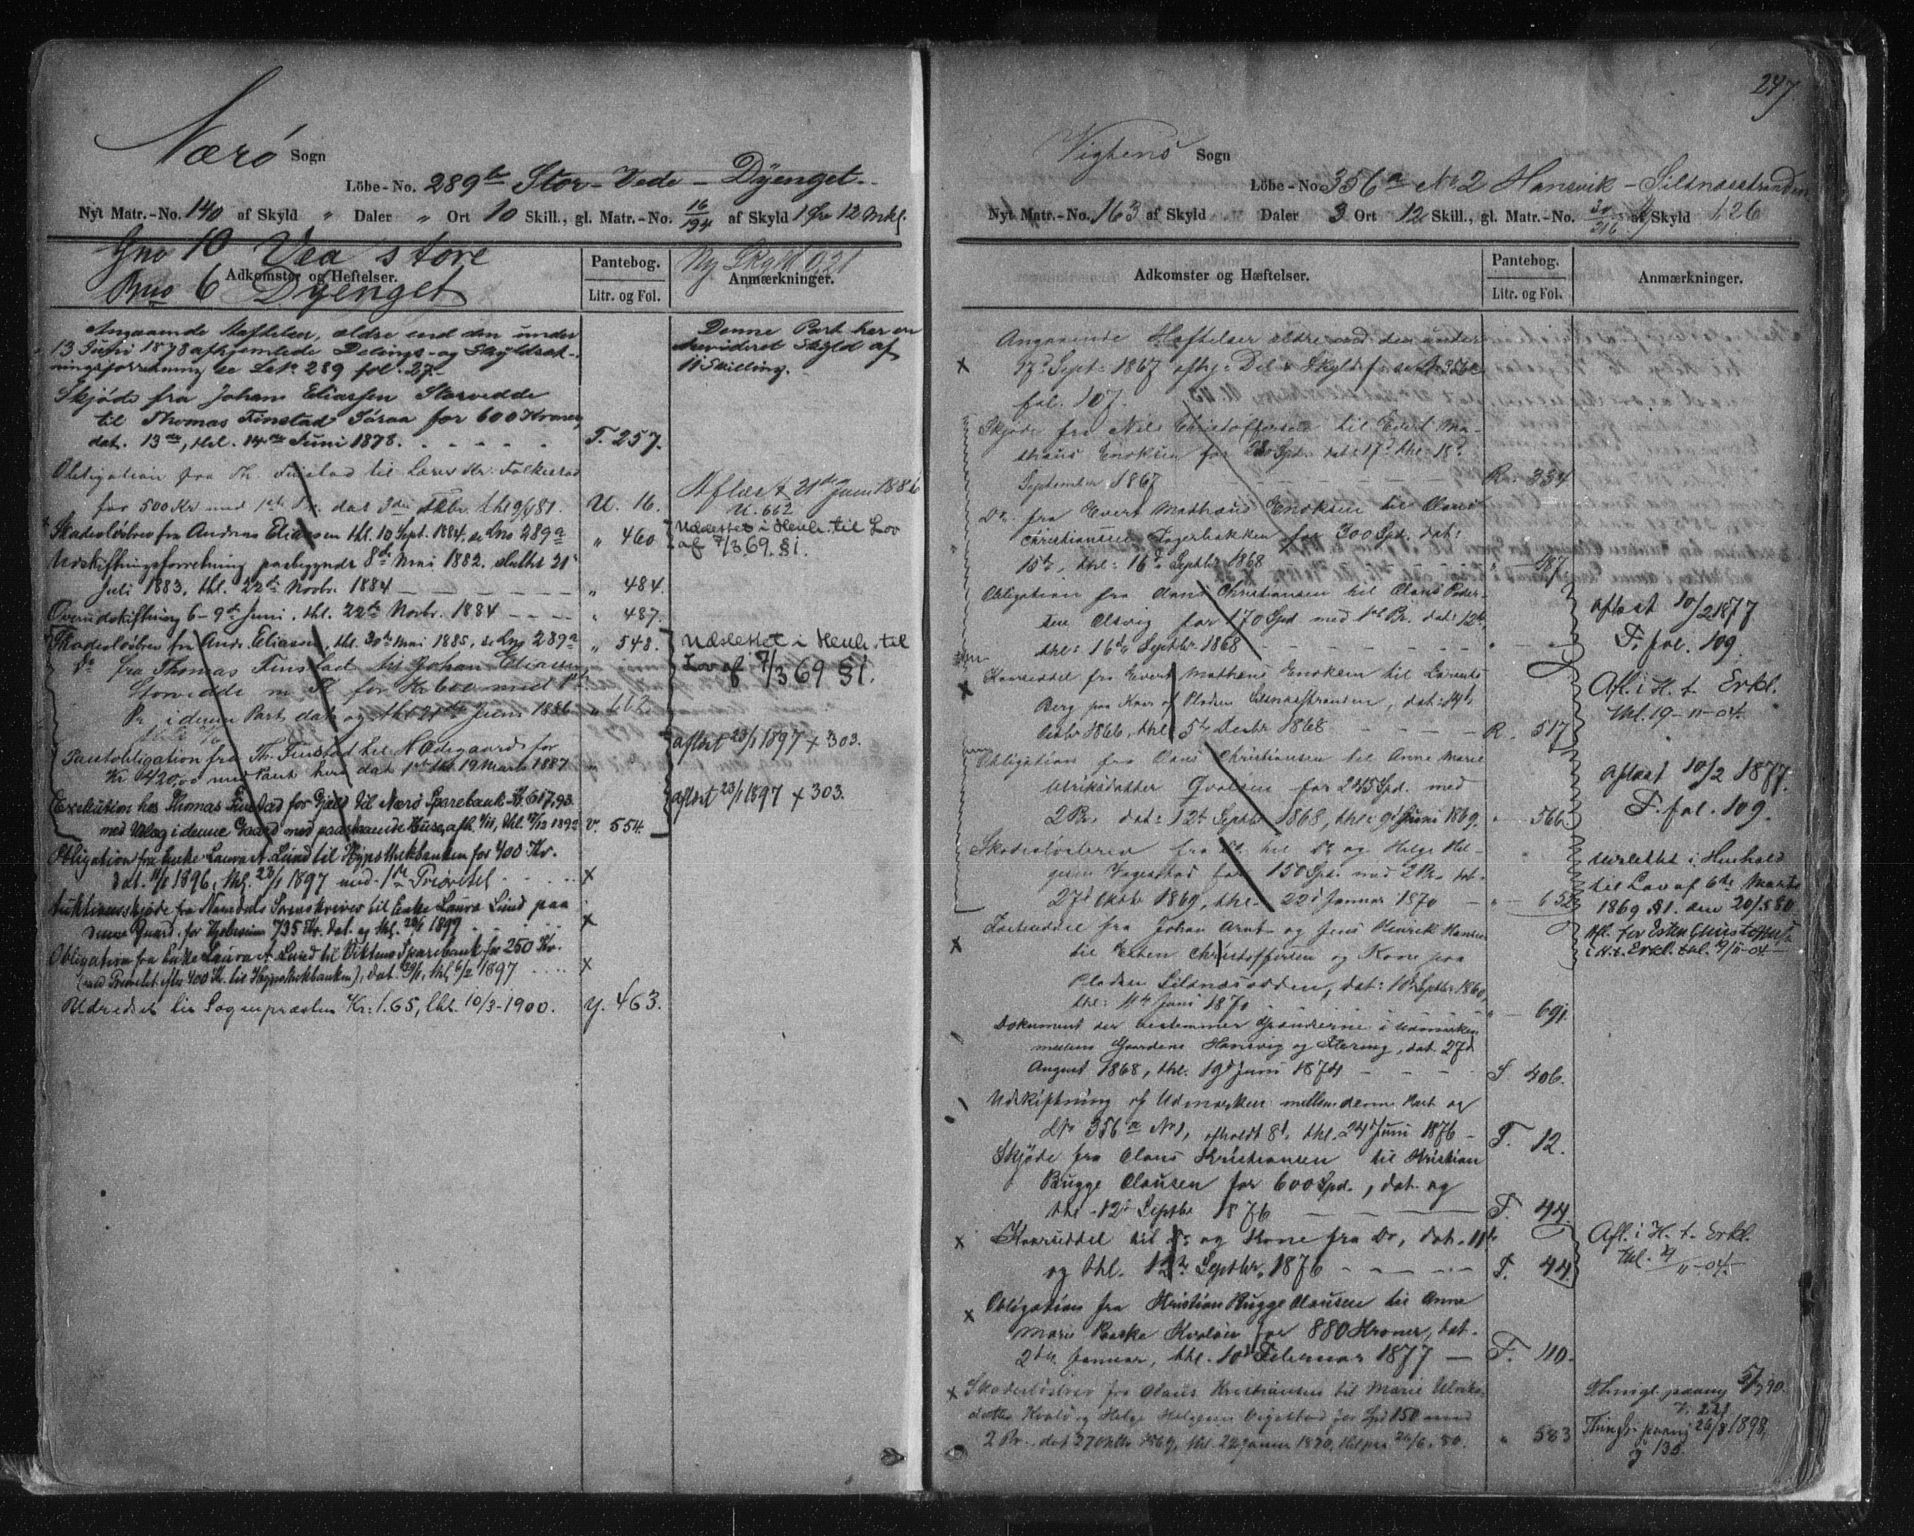 Nærö Sogn
Löbe-No. 289 b Stor-Vede - Dÿenget.
Nyt Matr.-No. 140 af Skyld " Daler " Ort 10 Skill., gl. Matr.-No. 16/194 af Skyld 1 Öre 12 Mkl.
Gno 10 Vea store
Bno 6 Dÿenget
Adkomster og Heftelser.
Pantebog.
Litr. og Fol.
Ny Skyld 0,21
Anmærkninger.
Angaaende Heftelser, ældre end den under
13 Juni 1878 afhjemlede Delings- og Skyldsæt-
ningsforretning se Lno 289 fol. 27.
Denne Part har en
revideret Skyld af
11 Skilling.
Skjøde fra Johan Eliassen Storvedde
til Thomas Finstad Søraa for 600 Kroner,
dat. 13de, thl. 14de Juni 1878. T. 257.
Obligation fra Th. Finstad til Lærer Kr. Falkestad
for 500 Kr med 1ste Pr. dat 3die thl 9/6 81. U. 16.
Aflæst 21de Juni 1886
U. 662
Skadesløsbrev fra Andreas Eliassen thl. 10 Sept. 1884. se Lno 289a " 460.
Udslettet i Henh. til Lov
af 7/3 69. §1.
Udskiftningsforretning paabegyndt 8de Mai 1882, sluttet 21
Juli 1883, thl. 22de Novbr. 1884 " 484.
Overudskiftning 6-9de Juni, thl. 22de Novbr. 1884 " 487.
Skadesløsbrev fra Andr. Eliassen, thl. 30te Mai 1885, se Lno 289a " 548.
Udslettet i Henh. til
Lov af 7/3 69 §1.
Do fra Thomas Finstad til Johan Eliasen
Storvedde
Pr. i denne Part dat og thl 21de Juni 1886 " 662
Pantobligation fra Th. Finstad til N. Ødegaard for
Kr. 420,00 med Pant heri dat 1ste thl 19 Marts 1887 "
aflæst 23/1 1897 x 303.
Exekution hos Thomas Finstad for Gjæld til Nærö Sparebank Kr. 617,93
med Udlæg i denne Gaard med paastaaende Huse, afh. 4/11, thl. 9/12 1892 V. 554.
aflæst 23/1 1897 x 303.
Obligation fra Enke Laura A. Lund til Hypothekbanken for 400 Kr.
dat. 11/11 1896, thl. 23/1 1897 med 1ste Prioritet x
Auktionsskjøde fra Namdals Sorenskriver til Enke Laura Lund paa
denne Gaard for Kjøbesum 735 Kr. dat. og thl. 22/1 1897 x
Obligation fra Enke Laura A Lund til Viktens Sparebank for 250 Kr.
(med Prioritet efter 400 Kr. til Hypothekbanken), dat. 29/1, thl. 6/2 1897 x
Udredsel til Sognepræsten Kr: 1.65, thl. 10/3-1900. Y. 463.
247.
Vigtens Sogn
Löbe-No. 356 a No 2 Hansvik - Sildnæsstranden
Nyt Matr.-No. 163 af Skyld " Daler 3 Ort 12 Skill., gl. Matr.-No. 30/216 af Skyld 1.26
Adkomster og Hæftelser.
Pantebog.
Litr. og Fol.
Anmærkninger.
Angaaende Hæftelser ældre end den under
17d Sept: 1867 afhj. Del & Skyldsf. se Lno 356 a
fol. 107.
Skjøde fra Nils Christoffersen til Evert Ma-
thæus Enoksen for 280 Spd. dat: 17d thl: 18d
September 1867 R. 334
Do. fra Evert Mathæus Enoksen til Claus
Christiansen Fagerbakken for 300 Spd. dat:
15de, thl: 16de Septbr 1868 " 487
Obligation fra Claus Christiansen til Claus Peder-
sen Olsvig for 170 Spd med 1ste Pr. dat: 12te
thl: 16de Septbr 1868 "
aflæst 10/2 1877
T. fol. 109.
Kaarseddel fra Evert Mathæus Enoksen til Laurits
Berg paa Kaar af Pladsen Sildnæsstranden, dat: 14de
Octbr 1866, thl. 5te Decbr 1868 R. 517
Afl. i H. t. Erkl.
thl. 19-11-04.
Obligation fra Claus Christiansen til Anne Marie
Ulriksdatter Qvaløen for 245 Spd. med
2 Pr. dat: 12te Septbr 1868, thl: 9d Juni 1869. " 566
aflæst 10/2 1877.
T. fol. 109.
Skadesløsbrev fra Do. til Do og Helge Hel-
gesen Vogstad for 150 Spd. med 2 Pr. dat.
27d Oktbr 1869, thl. 22d Januar 1870 " 652
udslettet i Henhold
til Lov af 6te Marts
1869 §1. den 20/5 80.
Fæsteseddel fra Johan Arnt og Jens Henrik Hansen
til Esten Christoffersen og Kone paa
Pladsen Sildnæsodden, dat: 10d Septbr 1860,
thl: 11te Juni 1870 " 691.
Afl. for Esten Christoffersen
i H. t. Erkl. thl. 19/11-04
Dokument der bestemmer Grændserne i Udmarken
mellem Gaardene Hansvig og Staring, dat. 27d
August 1868, thl. 19d Juni 1874 S 406.
Udskiftning af Udmarken mellem denne Part og
Lno 356 a No 1, afholdt 8d, thl. 24d Juni 1876 T. 12.
Skjøde fra Claus Kristiansen til Kristian
Bugge Clausen for 600 Spd., dat. og
thl. 12d Septbr 1876 T. 44.
Kaarseddel til Do og Kone fra Do, dat. 11te
og thl. 12te Septbr. 1876 T. 44.
Afl. i H. t. Erkl.
thl. 19/11-04.
Obligation fra Kristian Bugge Clausen til Anne
Marie Kvaløen for 880 Kroner, dat.
2den Januar, thl. 10d Februar 1877 T. 110.
Skadesløsbrev fra Claus Kristiansen til Marie Ulriks-
datter Kvalø og Helge Helgesen Vogstad for Spd 150 med
2 Pr. dat 27 Oktbr 1869, thl. 22 Januar 1870, 20/6. 80. " 583
Thingl. paany 5/7 90.
V. 221
Thingl. paany 26/8 1898,
Y 135.